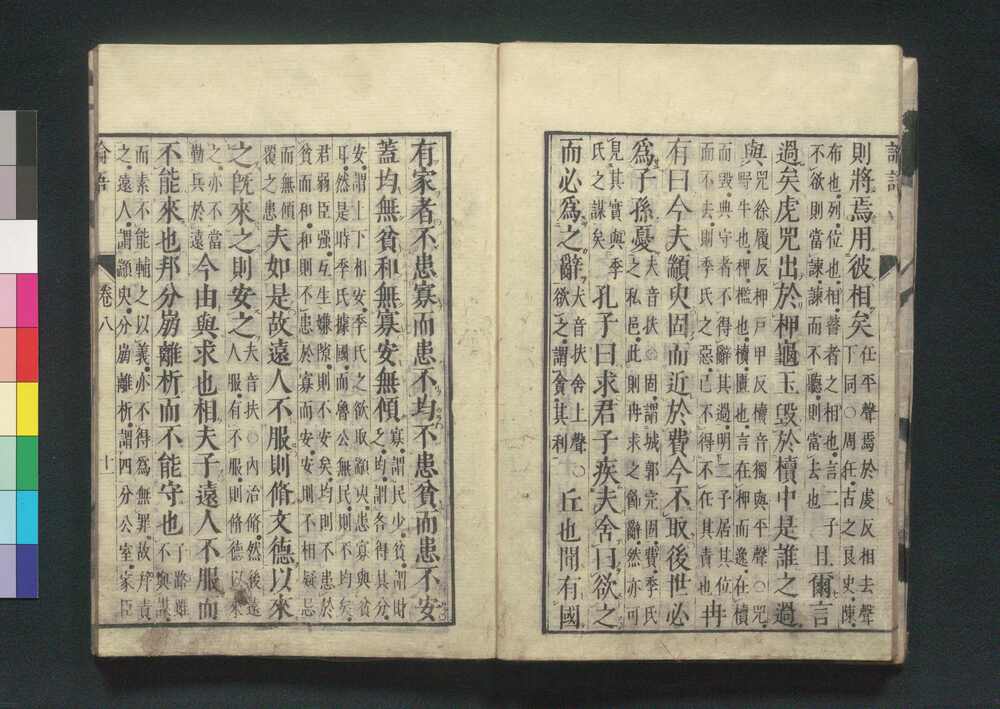 論語
則將焉用彼相矣任平聲焉於虔反相去聲
下同○周任古之良史陳
布也列位也相瞽者之相也言二子
不欲則當諫諫而不聽則當去也且爾言
過矣虎兕出於柙龜玉毀於櫝中是誰之過
與兕徐履反柙戸甲反櫝音獨與平聲○兕
野牛也柙檻也櫝匱也言在柙而逸在櫝
而毀典守者不得辭其過明二子居其位
而不去則季氏之惡己不得不任其責也冉
有曰今夫顓臾固而近於費今不取後世必
爲子孫憂夫音扶○固謂城郭完固費季氏
之私邑此則冉求之飾辭然亦可
見其實與季
氏之謀矣孔子曰求君子疾夫舍曰欲之
而必爲之辭夫音扶舍上聲○
欲之謂貪其利丘也聞有國
有家者不患寡而患不均不患貧而患不安
蓋均無貧和無寡安無傾寡謂民少貧謂財
乏均謂各得其分
安謂上下相安季氏之欲取顓臾患寡與貧
耳然是時季氏據國而魯公無民則不均矣
君弱臣强互生嫌隙則不安矣均則不患於
貧而和和則不患於寡而安安則不相疑忌
而無傾
覆之患夫如是故遠人不服則脩文德以來
之旣來之則安之夫音扶○內治脩然後遠
人服有不服則脩德以來
之亦不當
勤兵於遠今由與求也相夫子遠人不服而
不能來也邦分崩離析而不能守也子路雖
不與謀
而素不能輔之以義亦不得爲無罪故幷責
之遠人謂顓臾分崩離析謂四分公室家臣
論語
卷八
十